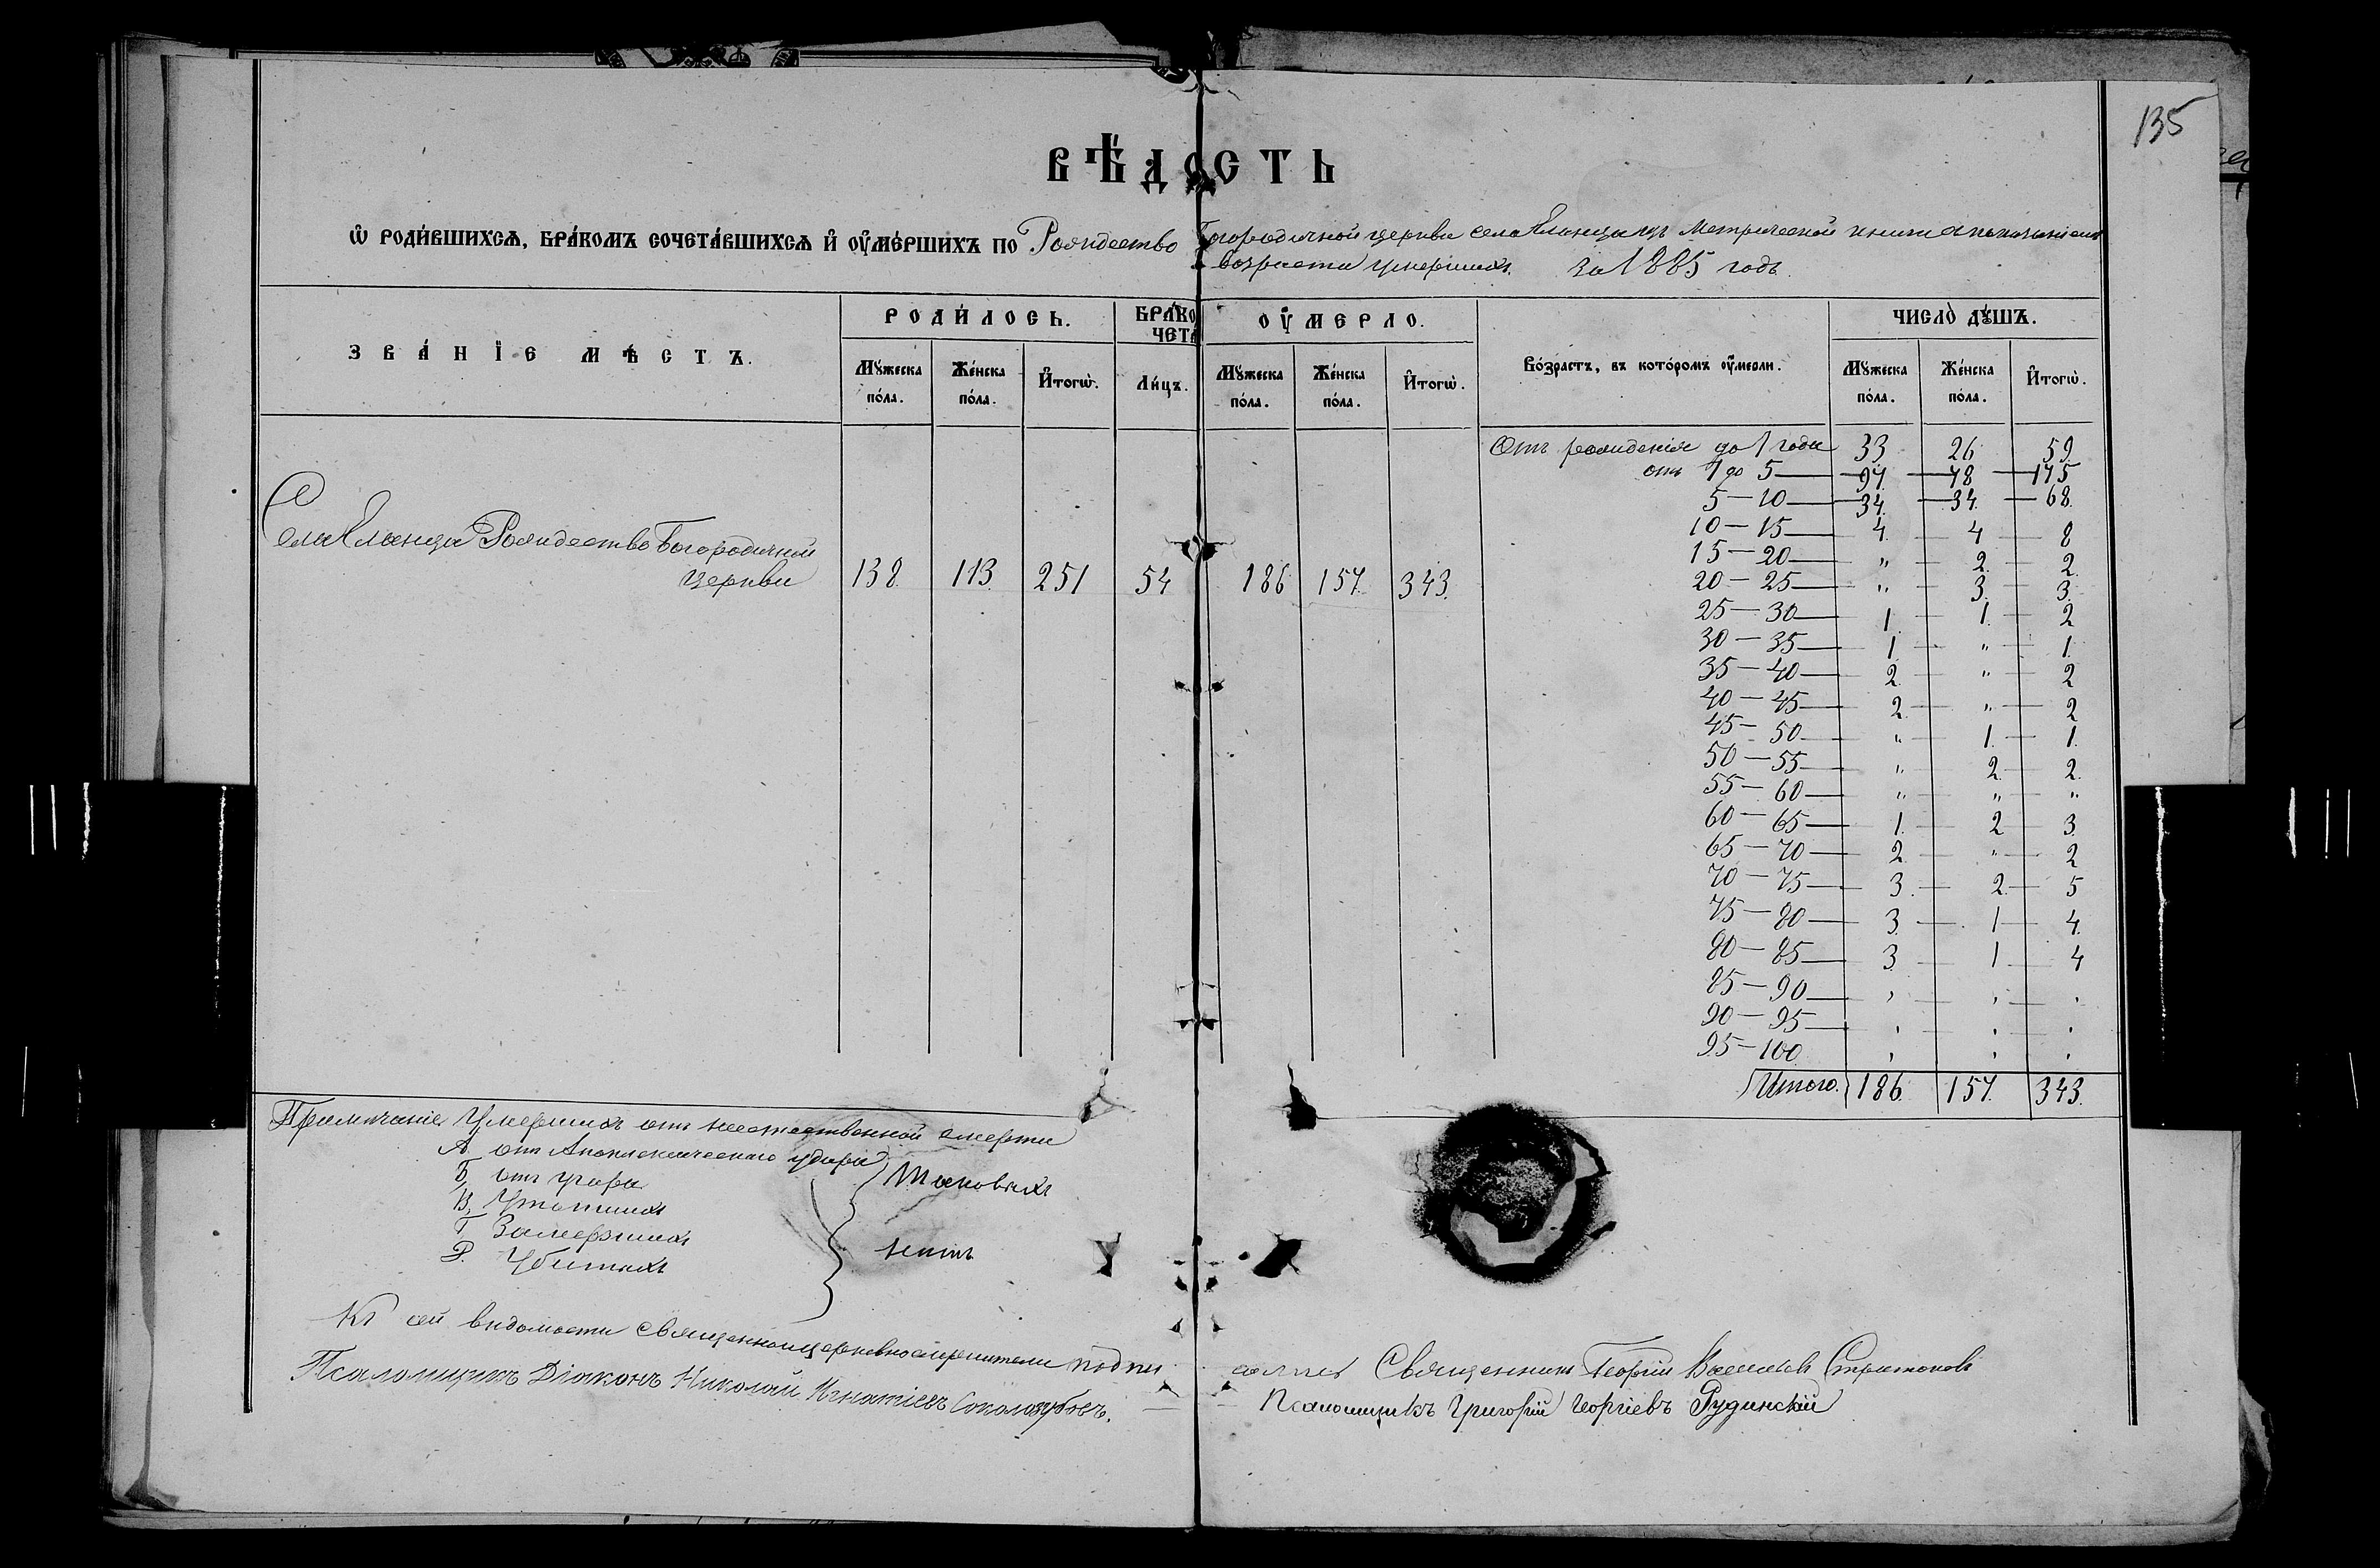 135
ВѢДОСТЬ
Ѡ РОДИ́ВШИХСѦ, БРА́КОМЪ СОЧЕТА́ВШИХСѦ И҆ ОУ҆МЕ́РШИХЪ ПО Рождество Богородичной церкви села Еланца изъ метрической книги с показаніемъ
возраста умершихъ. За 1885 годъ.
ЗВА́НІЕ МѢСТЪ.
РОДИ́ЛОСЬ.
БРАКО
ЧЕТА
ОУ҆МЕРЛО.
Во́зрастъ, въ кото́ромъ оу҆мерли.
ЧИСЛО̀ ДꙊШЪ.
Мꙋжеска по́ла. Же́нска по́ла. И҆тогѡ̀. Ли́цъ. Мꙋжеска по́ла. Же́нска по́ла. И҆тогѡ̀. Мꙋжеска по́ла. Же́нска по́ла. И҆тогѡ̀.
Села Еланца Рождество Богородичной
церкви 138. 113. 251 54 186 157. 343.
Отъ рожденія до 1 года 33 26 59
отъ 1 до 5 — 97. — 78 — 175
5 — 10 — 34. — 34. — 68.
10 — 15 — 4. — 4 — 8
15 — 20 — " — 2. — 2.
20 — 25 — " — 3. — 3.
25 — 30 — 1. — 1. — 2
30 — 35 — 1 — " — 1.
35 — 40 — 2. — " — 2
40 — 45 — 2. — " — 2
45 — 50 — " — 1. — 1.
50 — 55 — " — 2. — 2.
55 — 60 — " — " — "
60 — 65 — 1. — 2 — 3.
65 — 70 — 2. — " — 2
70 — 75 — 3. — 2. — 5
75 — 80 — 3. — 1 — 4.
80 — 85 — 3 — 1 — 4
85 — 90 — , — , — ,
90 — 95 — , — , — ,
95 — 100 , , ,
Итого. 186. 157. 343.
Примѣчаніе Умершихъ отъ неестественной смерти
А отъ Апоплексическаго удара
Б, отъ угара
В, Утопшихъ
Г Замерзшихъ
Д. Убитыхъ
Таковыхъ
нѣтъ
Къ сей вѣдомости священноцерковнослужители подпи
сались Священникъ Георгій Васильевъ Стритоновъ
Псаломщикъ Діаконъ Николай Игнатіевъ Соколозубовъ.
Псаломщикъ Григорій Георгіевъ Рудинскій